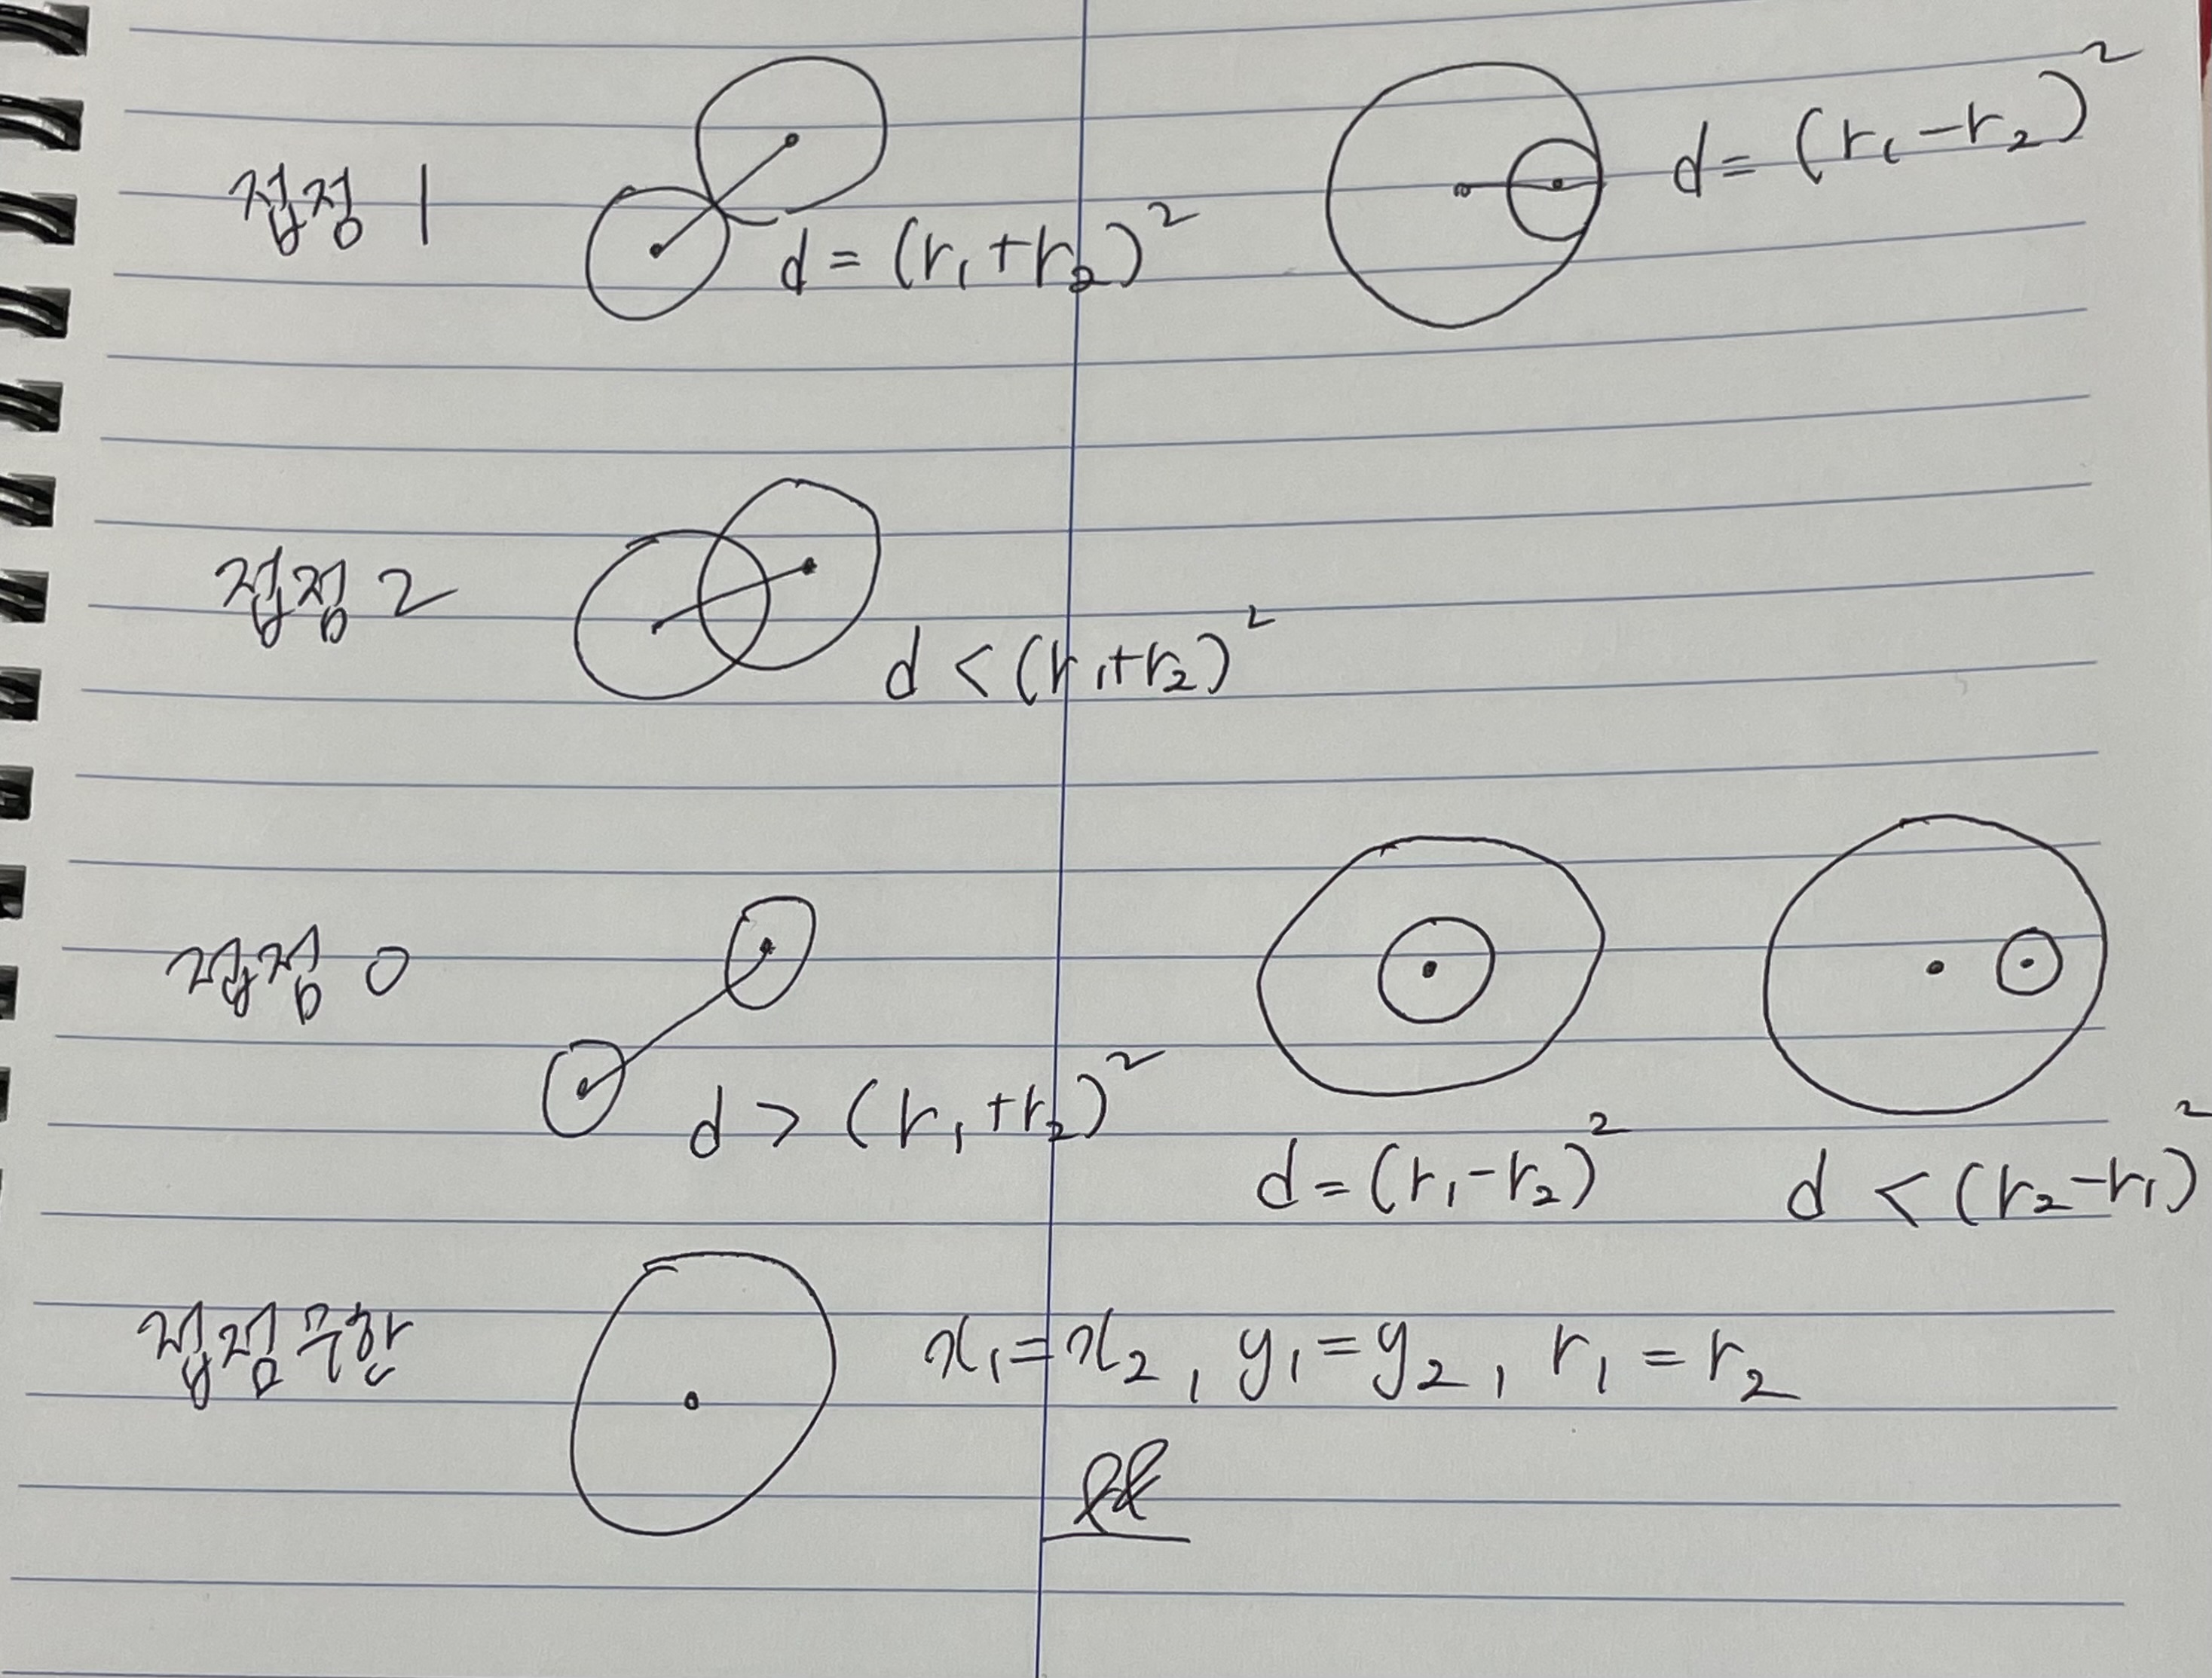 접점 1 d = (r₁+r₂)² d = (r₁-r₂)²
접점 2 d < (r₁+r₂)²
접점 0 d > (r₁+r₂)² d = (r₁-r₂)² d < (r₂-r₁)²
접점 무한 x₁=x₂, y₁=y₂, r₁=r₂